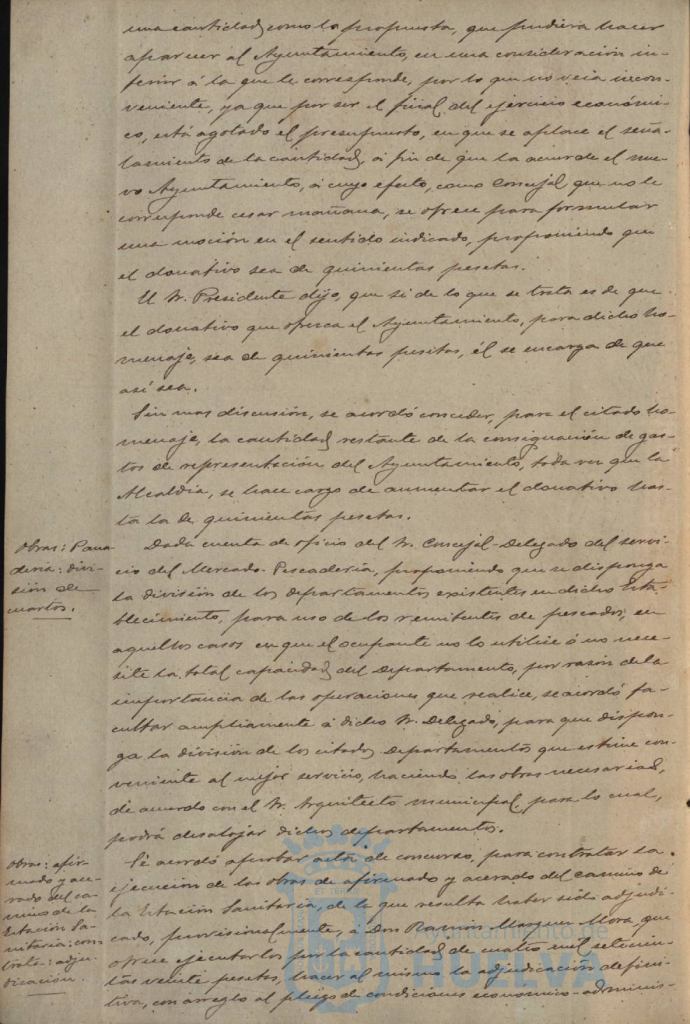 una cantidad como la propuesta, que pudiera hacer
aparecer al Ayuntamiento, en una consideración in-
ferior á la que le corresponde, por lo que no veía incon-
veniente, ya que por ser el final del ejercicio económi-
co, está agotado el presupuesto, en que se aplace el seña-
lamiento de la cantidad, á fin de que la acuerde el nue-
vo Ayuntamiento, á cuyo efecto, como Concejal que no le
corresponde cesar mañana, se ofrece para formular
una moción en el sentido indicado, proponiendo que
el donativo sea de quinientas pesetas.
El Sr. Presidente dijo, que si de lo que se trata es de que
el donativo que ofrezca el Ayuntamiento, para dicho ho-
menaje, sea de quinientas pesetas, él se encarga de que
así sea.
Sin mas discusión, se acordó conceder, para el citado ho-
menaje, la cantidad restante de la consignación de gas-
tos de representación del Ayuntamiento, toda vez que la
Alcaldía, se hace cargo de aumentar el donativo has-
ta la de quinientas pesetas.
Obras: Pana-
deria: divi-
sión de
cuartos.
Dada cuenta de oficio del Sr. Concejal-Delegado del servi-
cio del Mercado-Pescadería, proponiendo que se disponga
la división de los departamentos existentes en dicho Esta-
blecimiento, para uso de los remitentes de pescados, en
aquellos casos en que el ocupante no lo utilice ó no nece-
site la total capacidad del departamento, por razón de la
importancia de las operaciones que realice, se acordó fa-
cultar ampliamente á dicho Sr. Delegado, para que dispon-
ga la división de los citados departamentos que estime con-
veniente al mejor servicio, haciendo las obras necesarias,
de acuerdo con el Sr. Arquitecto municipal, para lo cual,
podrá desalojar dichos departamentos.
Obras: afir-
mado y ace-
rado del ca-
mino de la
Estación Sa-
nitaria: con-
trata: adju-
dicación.
Se acordó aprobar acta de concurso, para contratar la
ejecución de las obras de afirmado y acerado del camino de
la Estación Sanitaria, de la que resulta haber sido adjudi-
cado, provisionalmente, á Don Ramón Mora, que
ofrece ejecutarlos por la cantidad de cuatro mil setecien-
tas veinte pesetas, hacer al mismo la adjudicación defini-
tiva, con arreglo al pliego de condiciones económico-adminis-
Ayuntamiento de
HUELVA